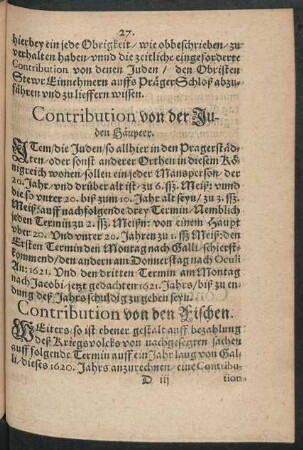 27.
hierbey ein jede Obrigkeit / wie obbeschrieben / zu
verhalten haben / vnnd die zeitliche eingeforderte
Contribution von denen Juden / den Obristen
Stewr Einnehmern auffs Präger Schloß abzu-
führen vnd zu lieffern wissen.
Contribution von der Ju-
den Häupter.
ITem / die Juden / so allhier in den Pragerstäd-
ten / oder sonst anderer Orthen in diesem Kö-
nigreich wonen / sollen ein jeder Mansperson / der
20. Jahr / vnd drüber alt ist / zu 6. ſß. Meiß: vnnd
die so vnter 20. biß zum 10. Jahr alt seyn / zu 3. ſß.
Meiß: auff nachfolgende drey Termin / Nemblich
jeden Termin zu 2. ſß. Meißn: von einem Haupt
vber 20. Vnd vnter 20. Jahren zu 1. ſß Meiß: den
Ersten Termin den Montag nach Galli / schierst-
kommend / den andern am Donnerstag nach Oculi
An: 1621. Vnd den dritten Termin am Montag
nach Jacobi / jetzt gedachten 1621. Jahrs / biß zu en-
dung deß Jahrs schuldig zu geben seyn.
Contribution von den Fischen.
WEiters / so ist ebener gestalt auff bezahlung
deß Kriegsvolcks von nachgesetzten sachen
auff folgende Termin auff ein Jahr laug von Gal-
li / dieses 1620. Jahrs anzurechnen / eine Contribu-
D iij tion-